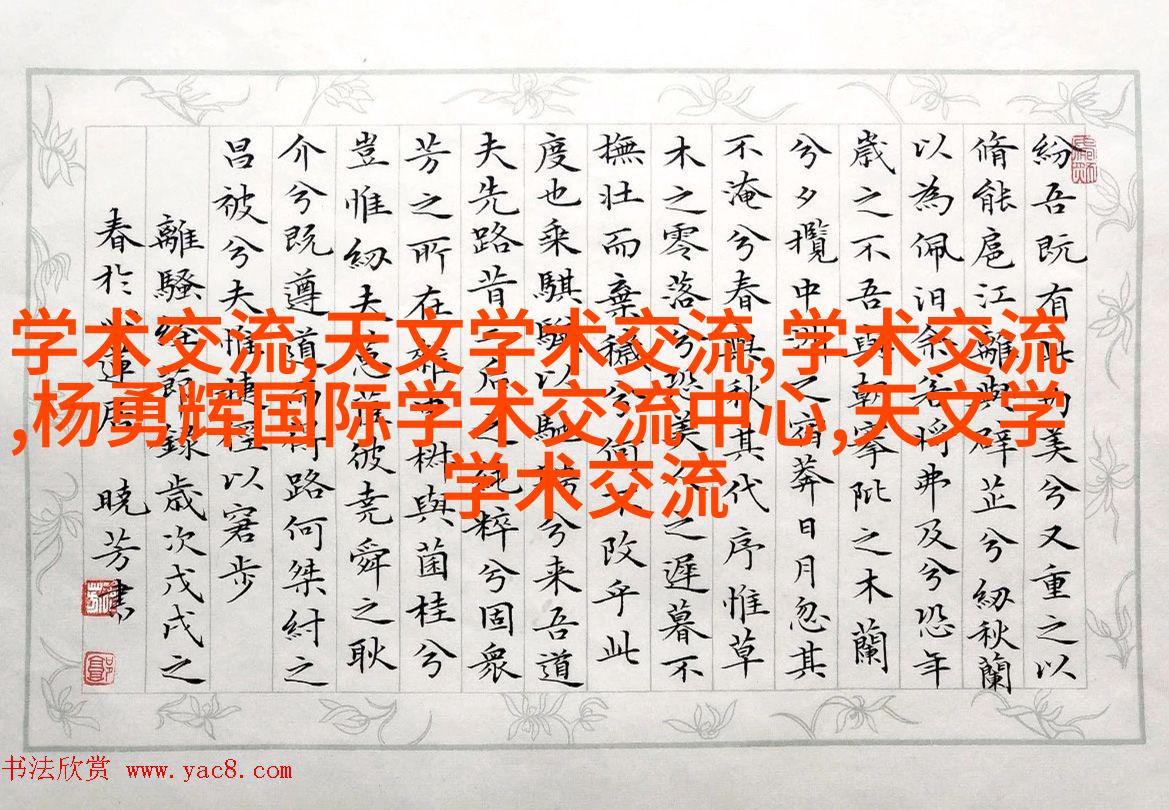 学术交流,天文学术交流,学术交流
,杨勇辉国际学术交流中心,天文学
学术交流
紛吾既有此內美兮又重之以
脩能扈江離與辟芷兮紉秋蘭
以為佩汩余若將弗及兮恐年
歲之不吾與朝搴阰之木蘭
兮夕攬中洲之宿莽日月忽其
不淹兮春與秋其代序惟草
木之零落兮恐美人之遲暮不
撫壯而棄穢兮何不改乎此
度也乘騏驥以馳騁兮来吾道
夫先路昔三后之純粹兮固眾
芳之所在雜申椒與菌桂兮
豈惟紉夫蕙茝彼堯舜之耿
介兮既遵道而得路何桀紂之
昌被兮夫惟捷徑以窘步
離騷經節錄歲次戊戌之
春於蓮居 曉芳書
书法欣赏 www.yac8.com